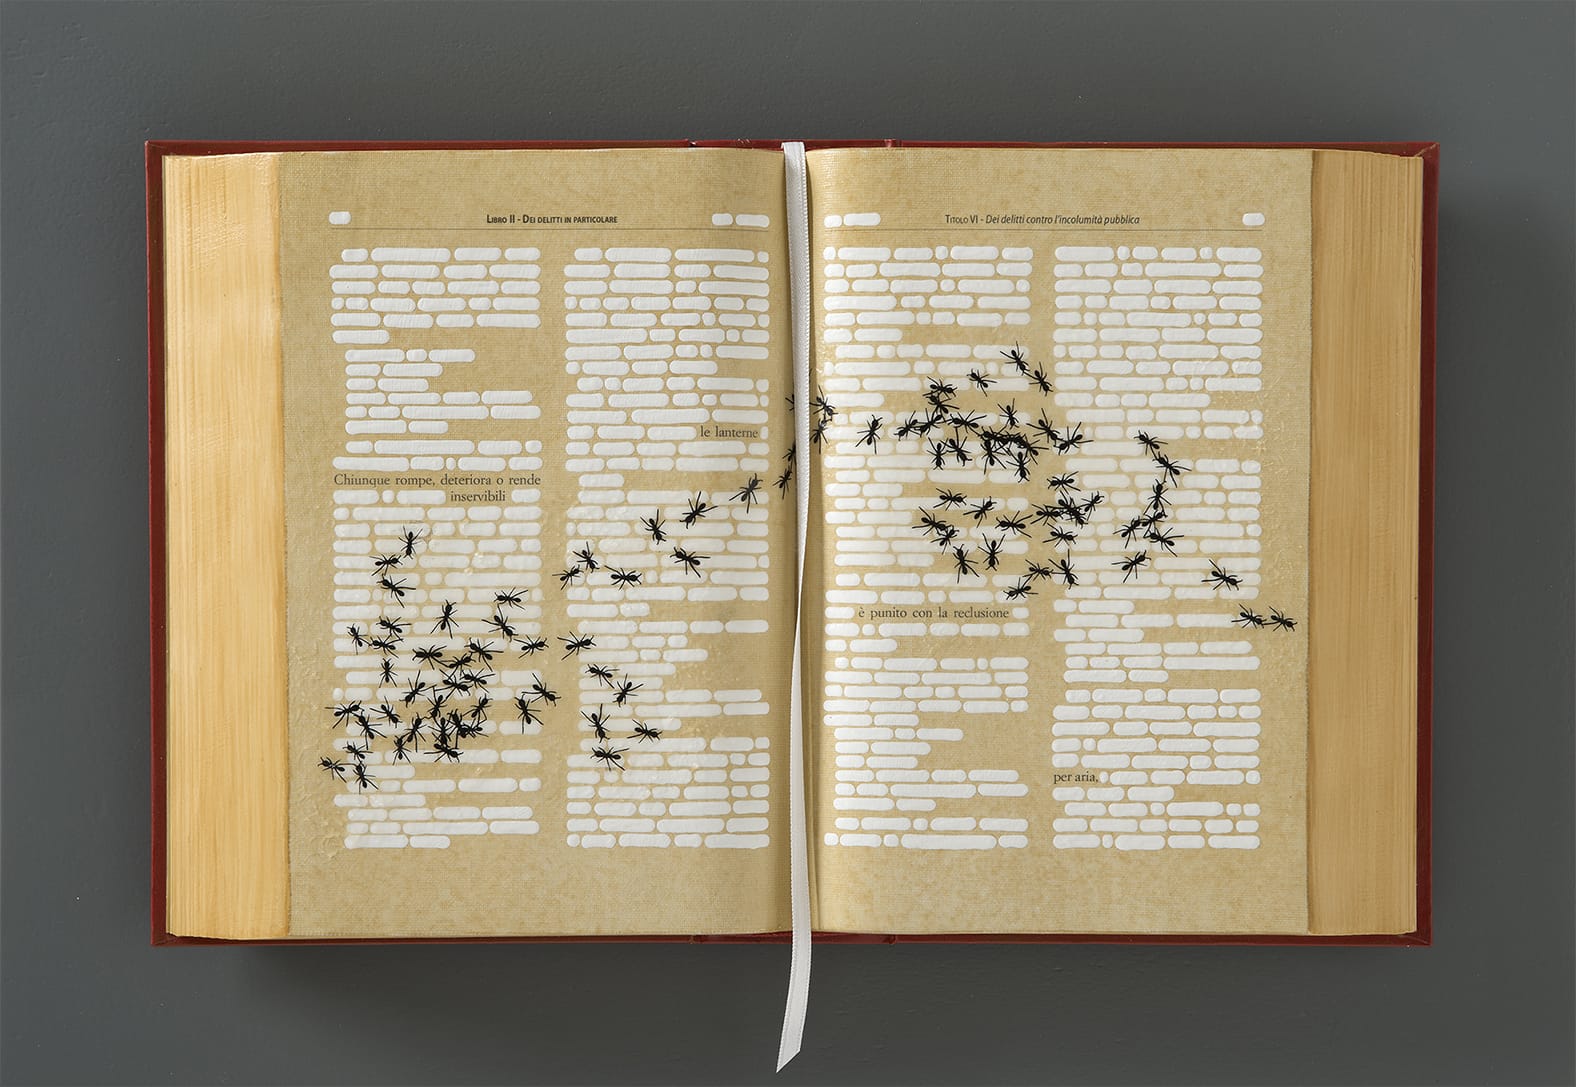 Libro II - Dei delitti in particolare
Chiunque rompe, deteriora o rende
inservibili
le lanterne
Titolo VI - Dei delitti contro l'incolumità pubblica
è punito con la reclusione
per aria,